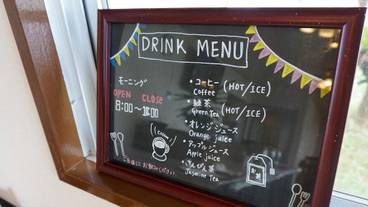 DRINK MENU
モーニング
OPEN CLOSE
8:00〜
• コーヒー (HOT/ICE)
Coffee
• 緑茶 (HOT/ICE)
Green Tea
• オレンジジュース
Orange juice
• アップルジュース
Apple juice
• さんぴん茶
Jasmine Tea
ご自由にお飲みください
お茶